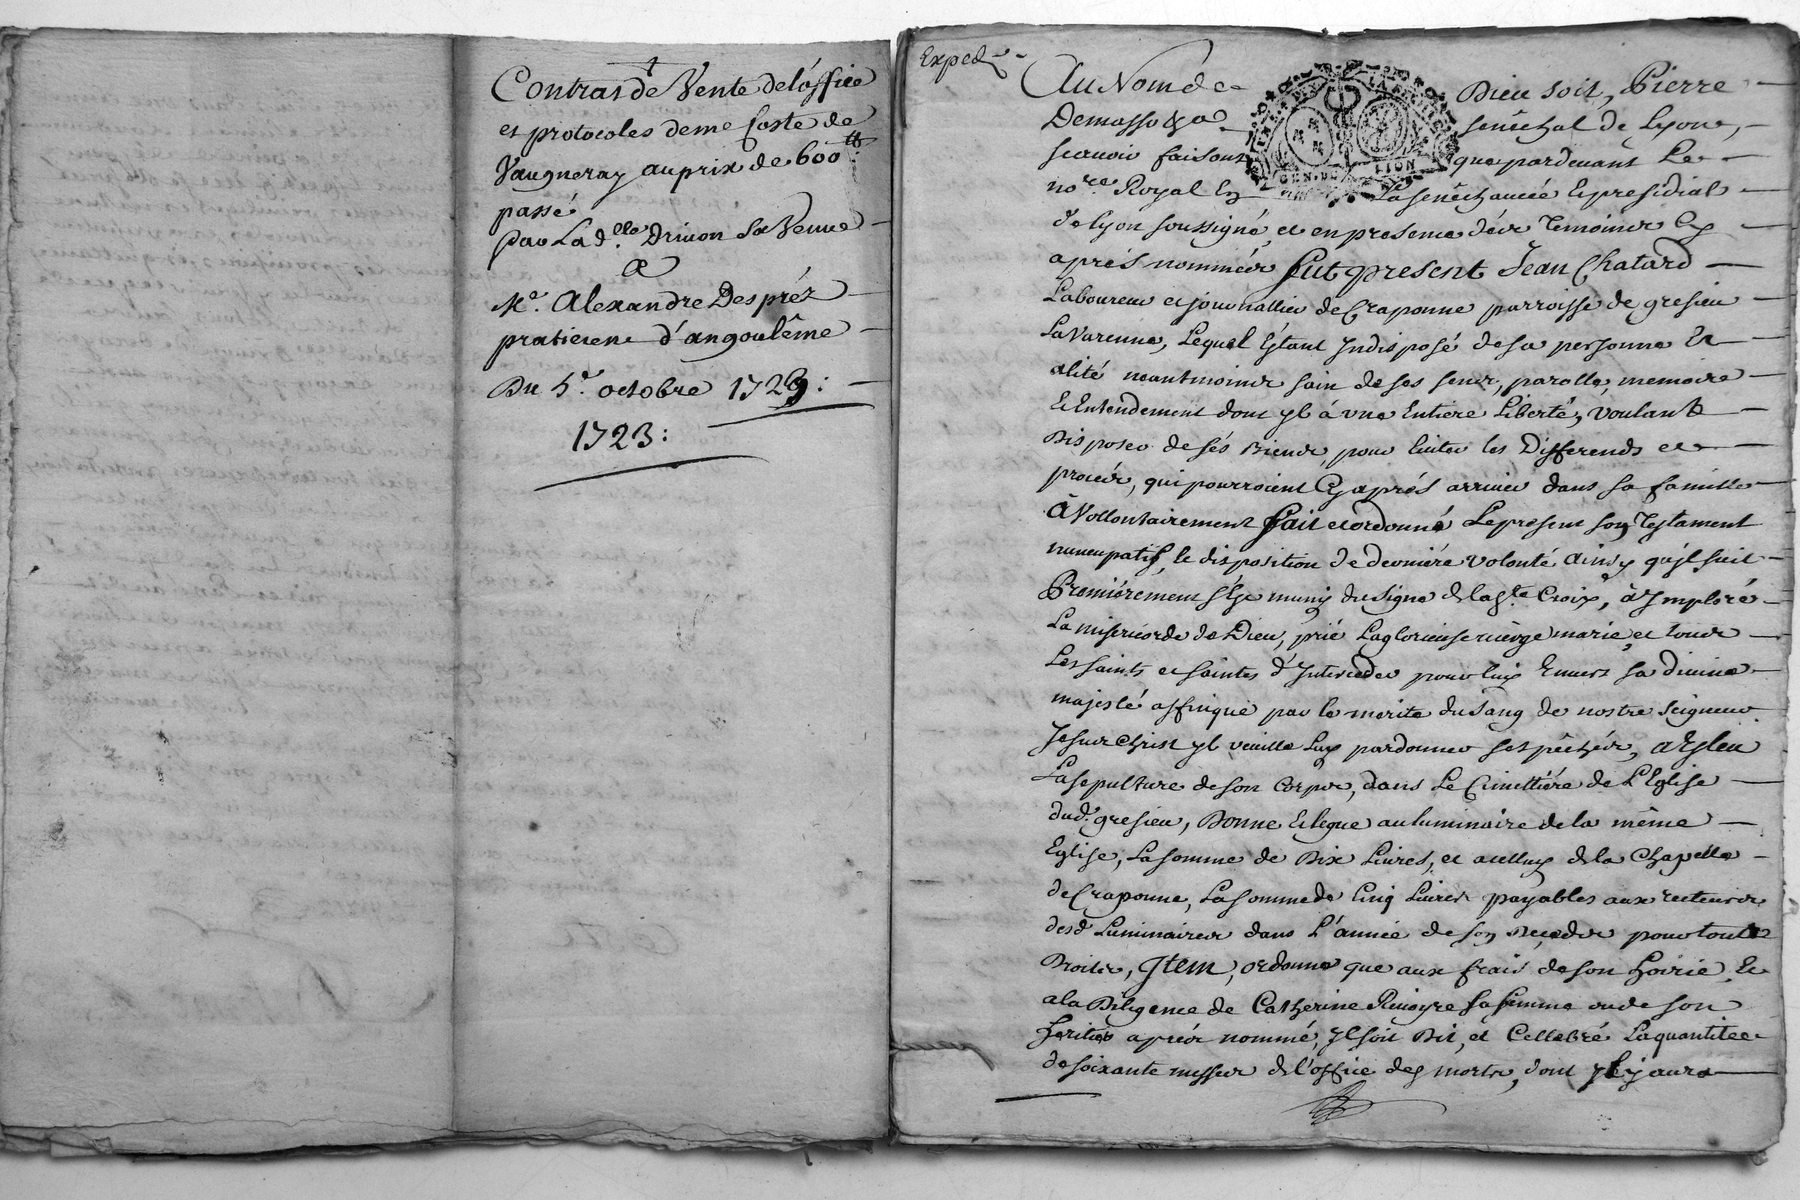 Contrat de Vente de l'office
et protocoles de me Coste de
Vaugneray au prix de 600 tt:
passé
par La d.lle Drivon Sa Veuve
a
Me. Alexandre Després
praticien d'angoulême
Du 5e. octobre 1729:
1723:
Exped.
Au Nom de Dieu soit, Pierre
Demasso senéchal de Lyon,
scavoir faisons que pardevant Le
nore. Royal En La senéchaucée et presidial
de lyon soussigné, et en presence des temoins cy
aprés nommés fut present Jean Chatard
Laboureur et journallier de Craponne parroisse de gresieu
La Varenne, Lequel Estant Indisposé de sa personne Et
alité neantmoins sain de ses sens, parolle, memoire
Et Entendement dont yl á une Entiere Liberté, voulant
Disposer de sés Biens, pour Eviter les Differends et
procés, qui pourroient Cy aprés arriver dans sa famille
à Vollontairement fait et ordonné Le present son Testament
nuncupatif, et disposition de derniére volonté ainsy qu'yl suit
Premiérement s'est muny du signe de la ste. Croix, à Imploré
La misericorde de Dieu, prié La glorieuse viérge marie, et tous
Les saints et saintes d'Interceder pour luy Envers sa divine
majesté affinque par le merite du sang de nostre seigneur
Jesus Christ yl veuille Luy pardonner ses pêchés, a Esleu
La sepulture de son Corps, dans Le Cimettiére de L'Eglise
dud. gresieu, Donne Et legue au luminaire de la même
Eglise, La somme de Dix Livres, et a celluy de la Chapelle
de Craponne, La somme de Cinq Livres payables aux recteurs
desd. Luminaires dans L'année de son decedz pour touts
Droits, Item, ordonne que aux frais de son hoirie, Et
a la Diligence de Catherine Rivoyre sa femme ou de son
heritier aprés nommé, yl soit Dit, et Cellebré La quantitée
de soixante messes de l'office des morts, dont yl y aura